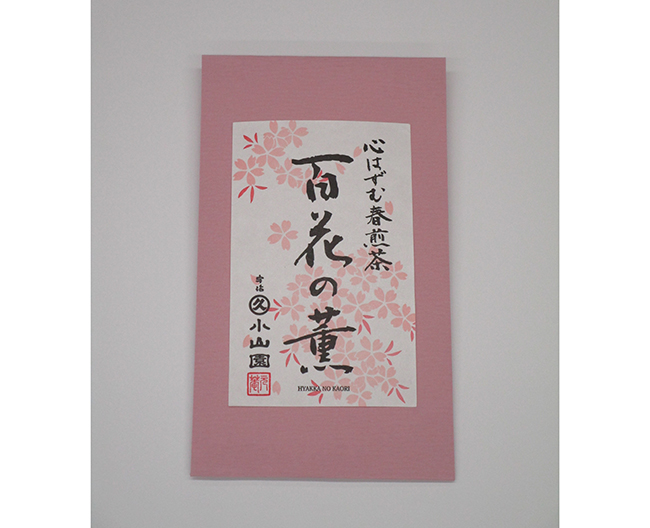 心はずむ春煎茶
百花の薫
HYAKKA NO KAORI
宇治
久
小山園